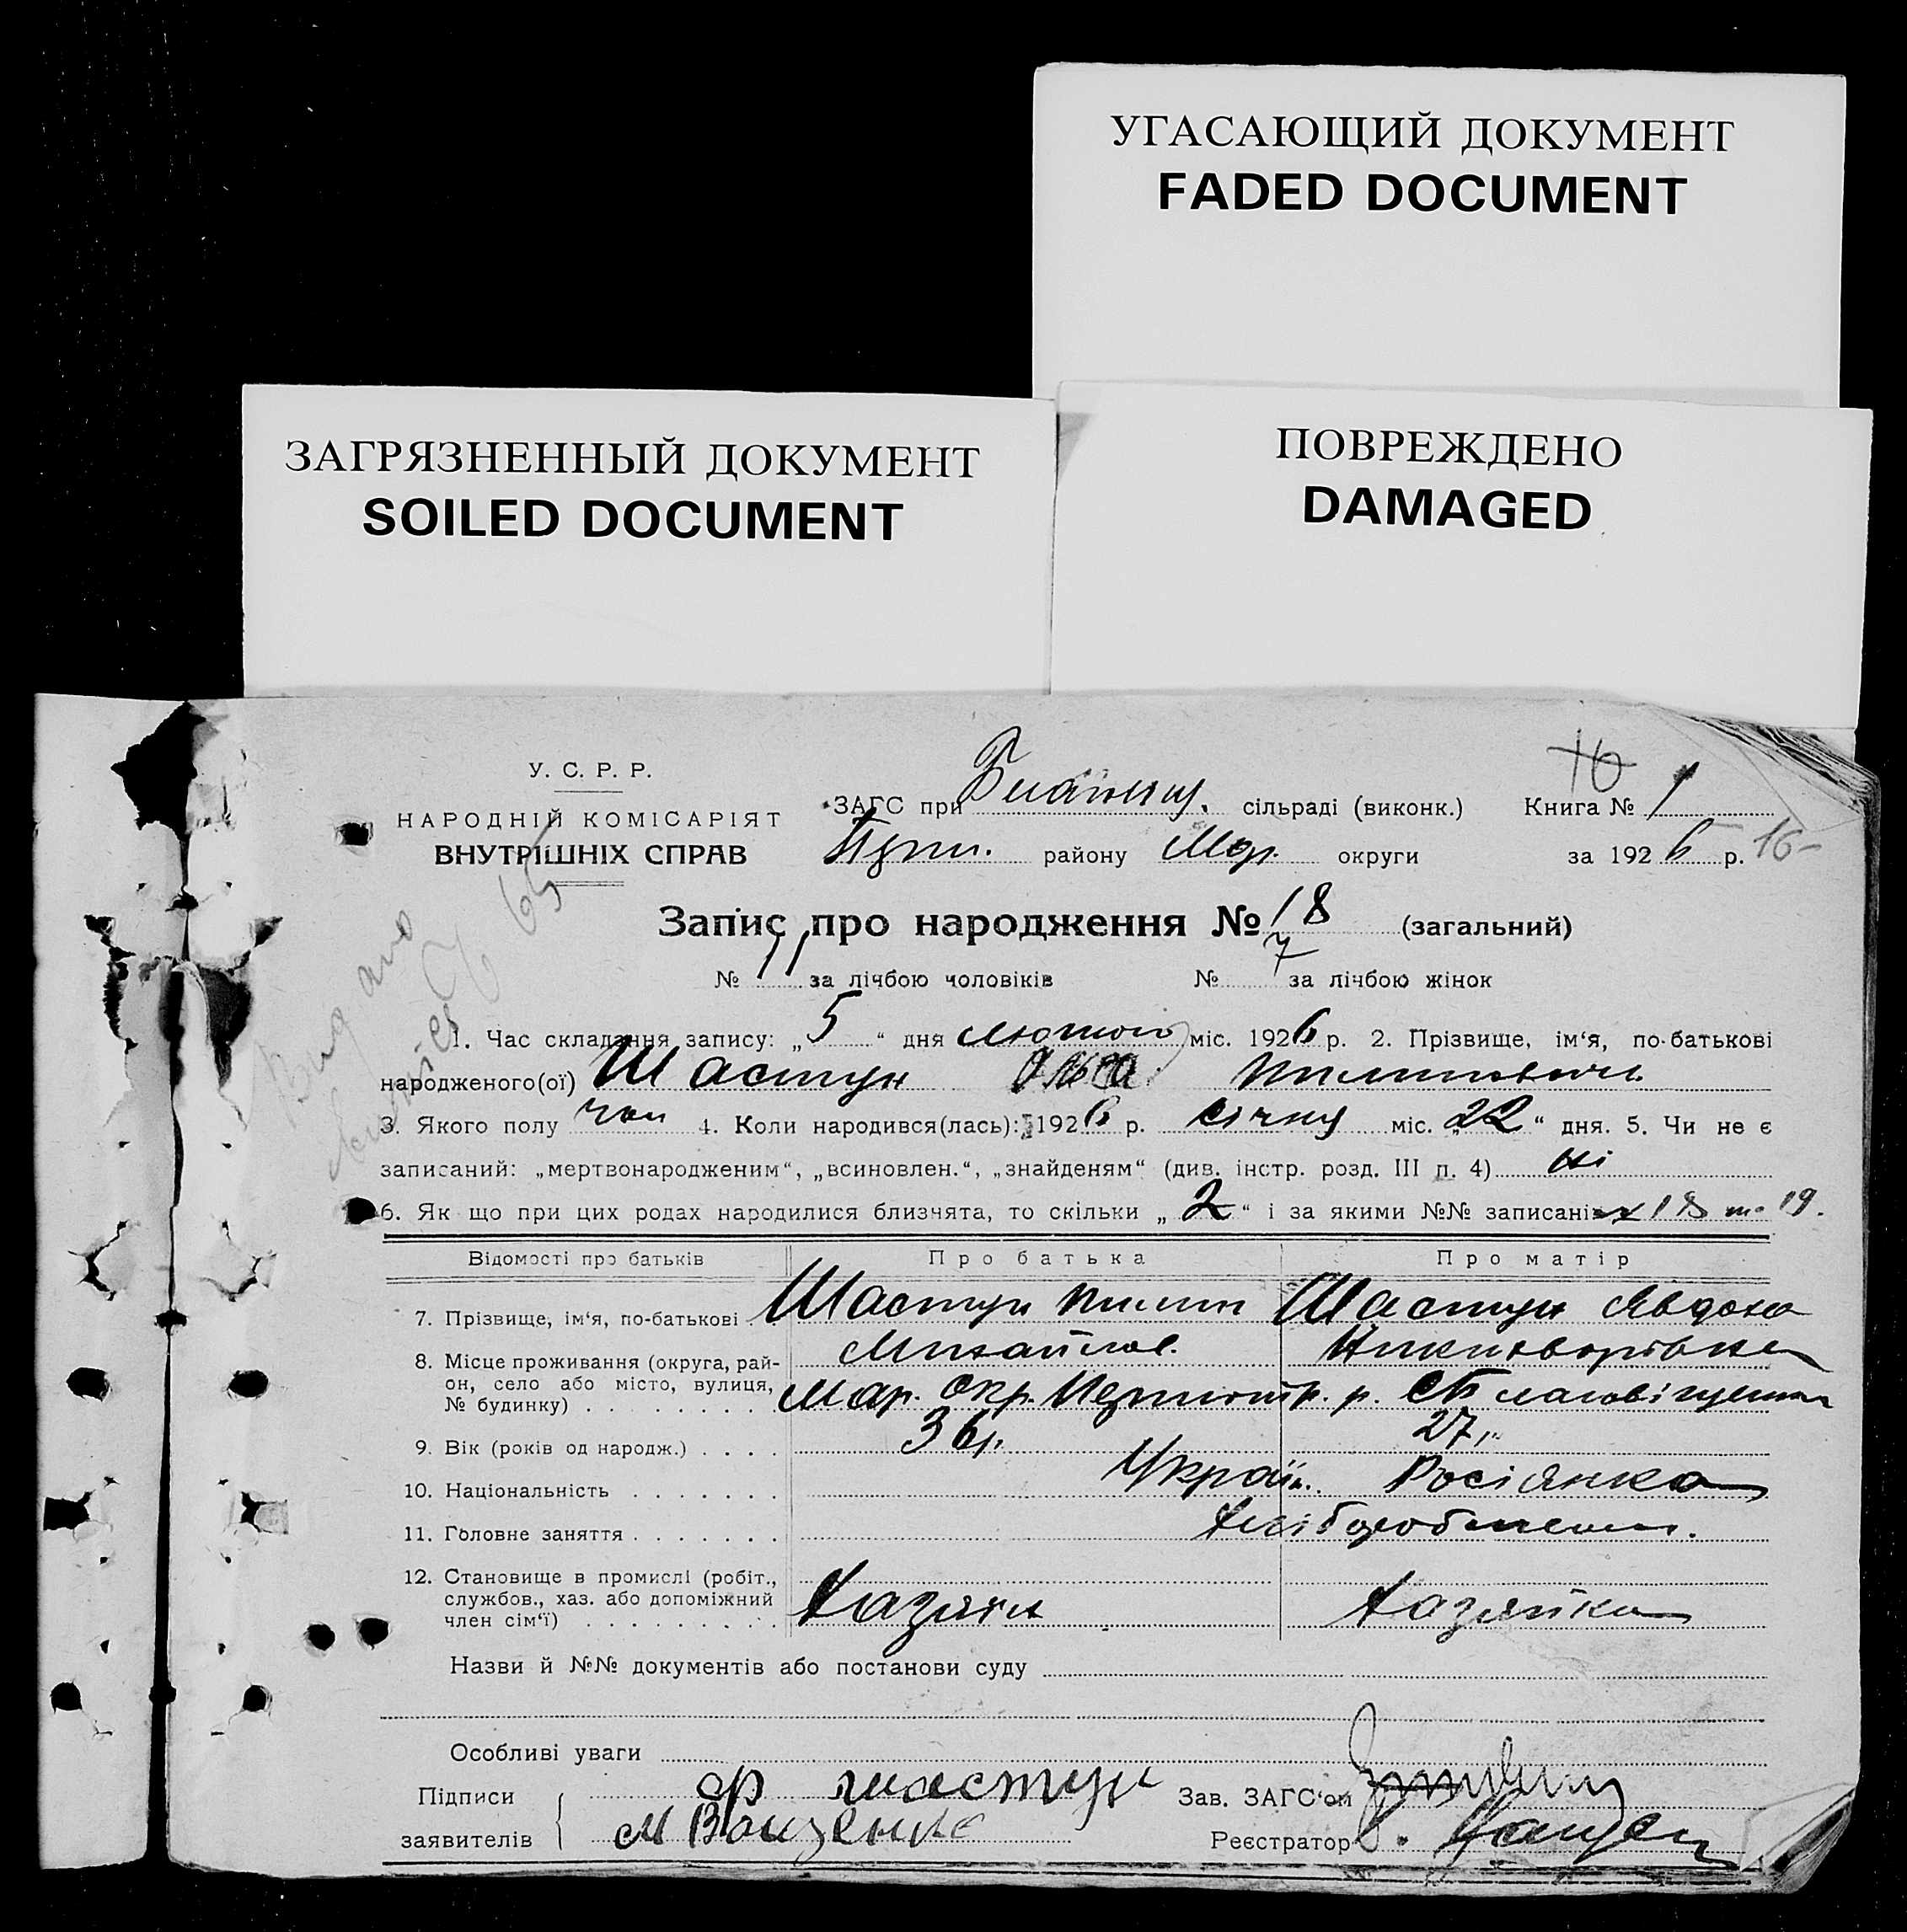 УГАСАЮЩИЙ ДОКУМЕНТ
FADED DOCUMENT
ЗАГРЯЗНЕННЫЙ ДОКУМЕНТ
SOILED DOCUMENT
ПОВРЕЖДЕНО
DAMAGED
16
У. С. Р. Р.
НАРОДНІЙ КОМІСАРІЯТ
ВНУТРІШНІХ СПРАВ
ЗАГС при сільраді (виконк.) Книга № 1
району Мар. округи за 1926 р. 16
Запис про народження № 18 (загальний)
№ 11 за лічбою чоловіків № 7 за лічбою жінок
1. Час складання запису: „5“ дня лютого міс. 1926 р. 2. Прізвище, ім‘я, по-батькові
народженого(ої) Шастун Пилипович
3. Якого полу чол 4. Коли народився(лась): 1926 р. січня міс. „22“ дня. 5. Чи не є
записаний: „мертвонародженим“, „всиновлен.“, „знайденям“ (див. інстр. розд. III п. 4) ні
6. Як що при цих родах народилися близнята, то скільки „2“ і за якими №№ записані 18 т. 19.
Відомості про батьків Про батька Про матір
7. Прізвище, ім‘я, по-батькові Шастун Пилип Шастун Явдоха
Михайлов.
8. Місце проживання (округа, рай-
он, село або місто, вулиця,
№ будинку) Мар. Окр. р. с.
9. Вік (років од народж.) 36 р. 27
10. Національність Україн. Росіянка
11. Головне заняття Хліборобством.
12. Становище в промислі (робіт.,
службов., хаз. або допоміжний
член сім‘ї) Хазяїн Хазяйка
Назви й №№ документів або постанови суду
Особливі уваги
Підписи
заявителів
Ф Шастун
Зав. ЗАГС‘ом
Реєстратор